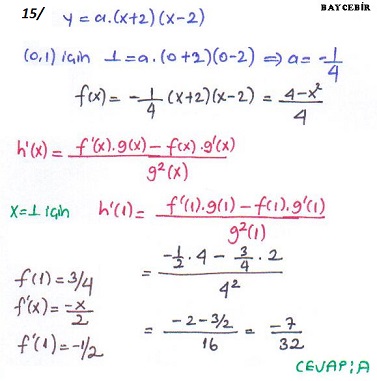 BAYCEBİR
15/ y = a.(x+2)(x-2)
(0,1) için 1 = a.(0+2)(0-2) ⇒ a = -1/4
f(x) = -1/4 (x+2)(x-2) = (4-x²)/4
h'(x) = (f'(x).g(x) - f(x).g'(x))/g²(x)
x=1 için h'(1) = (f'(1).g(1) - f(1).g'(1))/g²(1)
= (-1/2 . 4 - 3/4 . 2)/4²
f(1) = 3/4
f'(x) = -x/2
f'(1) = -1/2
= (-2 - 3/2)/16 = -7/32
CEVAP: A